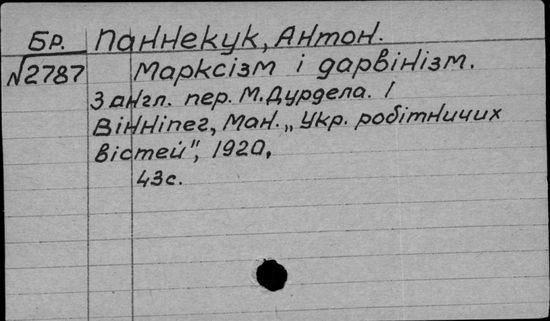 Бр. Паннекук, Антон.
№2787 Марксізм і дарвінізм.
З англ. пер. М. Дурдела. /
Вінніпег, Ман. „Укр. робітничих
вістей", 1920,
43с.